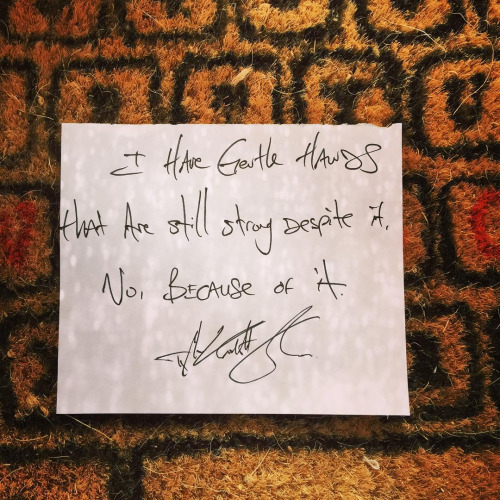 I HAVE GENTLE HANDS
that ARE still strong DESPITE it.
No, BECAUSE OF it.